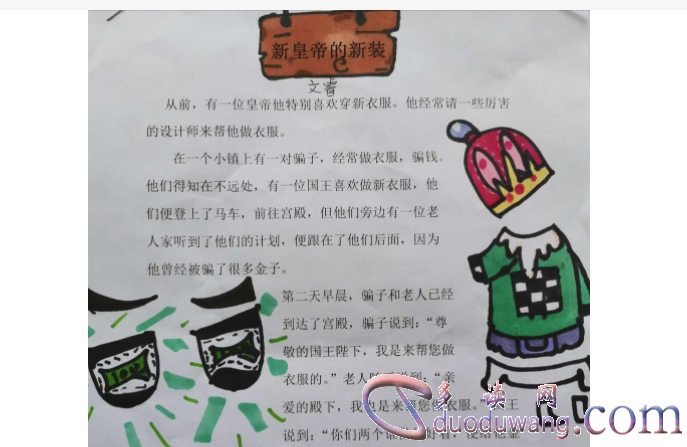 新皇帝的新装
文睿
从前，有一位皇帝他特别喜欢穿新衣服。他经常请一些厉害
的设计师来帮他做衣服。
在一个小镇上有一对骗子，经常做衣服，骗钱。
他们得知在不远处，有一位国王喜欢做新衣服，他
们便登上了马车，前往宫殿，但他们旁边有一位老
人家听到了他们的计划，便跟在了他们后面，因为
他曾经被骗了很多金子。
第二天早晨，骗子和老人已经
到达了宫殿，骗子说到：“尊
敬的国王陛下，我是来帮您做
衣服的。”老人 说到：“亲
爱的殿下，我也是来帮您做衣服。” 王
说到：“你们两个谁
多读网
duoduwang.com